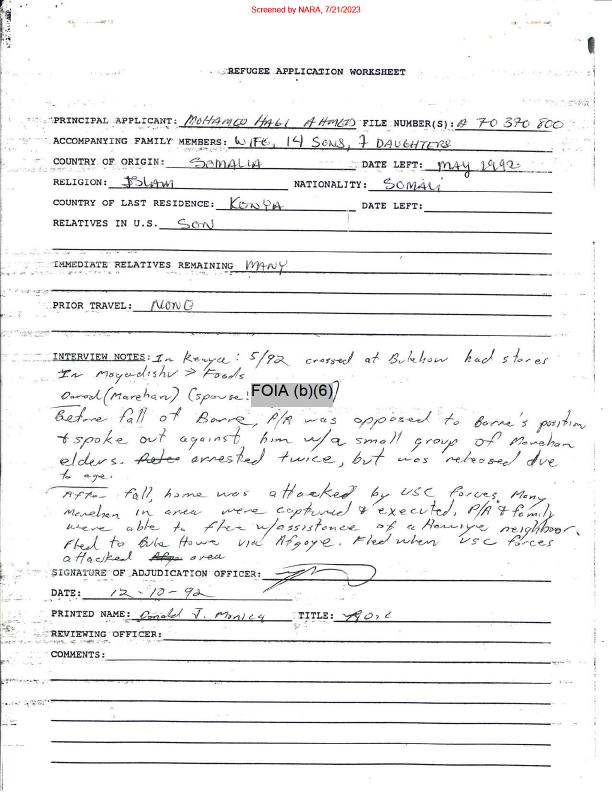 Screened by NARA, 7/21/2023
REFUGEE APPLICATION WORKSHEET
PRINCIPAL APPLICANT: MOHAMED HAGI AHMED FILE NUMBER(S): A 70 370 800
ACCOMPANYING FAMILY MEMBERS: WIFE, 14 SONS, 7 DAUGHTERS
COUNTRY OF ORIGIN: SOMALIA DATE LEFT: MAY 1992
RELIGION: ISLAM NATIONALITY: SOMALI
COUNTRY OF LAST RESIDENCE: KENYA DATE LEFT:
RELATIVES IN U.S. SON
IMMEDIATE RELATIVES REMAINING MANY
PRIOR TRAVEL: NONE
INTERVIEW NOTES: In Kenya: 5/92 crossed at Bulahow had stores
In Mogadishu > Foods
Darod (Marehan) (spouse: FOIA (b)(6))
Before fall of Barre, P/A was opposed to Barre's position
& spoke out against him w/a small group of Marehan
elders. arrested twice, but was released due
to age.
After fall, home was attacked by USC forces. Many
Marehan in area were captured & executed. P/A & family
were able to flee w/assistance of a Hawiye neighbor.
Fled to Bula Howa via Afgoye. Fled when USC forces
attacked Afgo area
SIGNATURE OF ADJUDICATION OFFICER:
DATE: 12-10-92
PRINTED NAME: Donald J. Monica TITLE:
REVIEWING OFFICER:
COMMENTS: